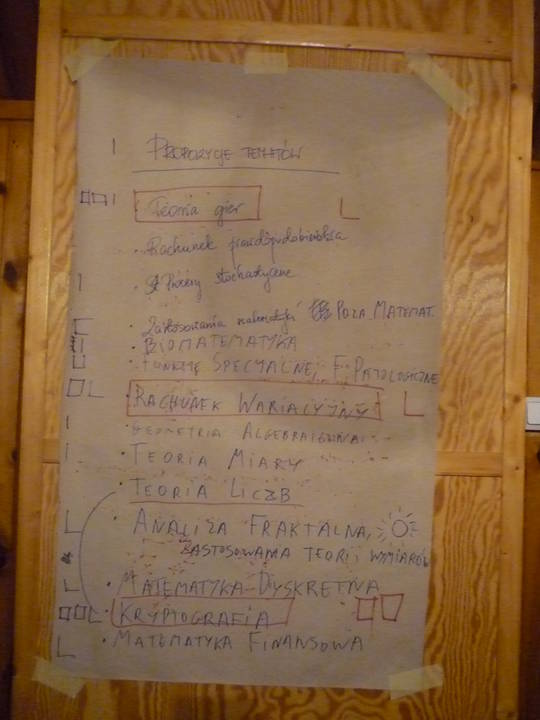 PROPOZYCJE TEMATÓW
Teoria gier
• Rachunek prawdopodobieństwa
• Procesy stochastyczne
• Zastosowania matematyki POZA MATEMAT.
• BIOMATEMATYKA
• FUNKCJE SPECJALNE, F. PATOLOGICZNE
• RACHUNEK WARIACYJNY
• GEOMETRIA ALGEBRAICZNA
• TEORIA MIARY
• TEORIA LICZB
• ANALIZA FRAKTALNA,
ZASTOSOWANIA TEORII WYMIARÓW
• MATEMATYKA DYSKRETNA
• KRYPTOGRAFIA
• MATEMATYKA FINANSOWA